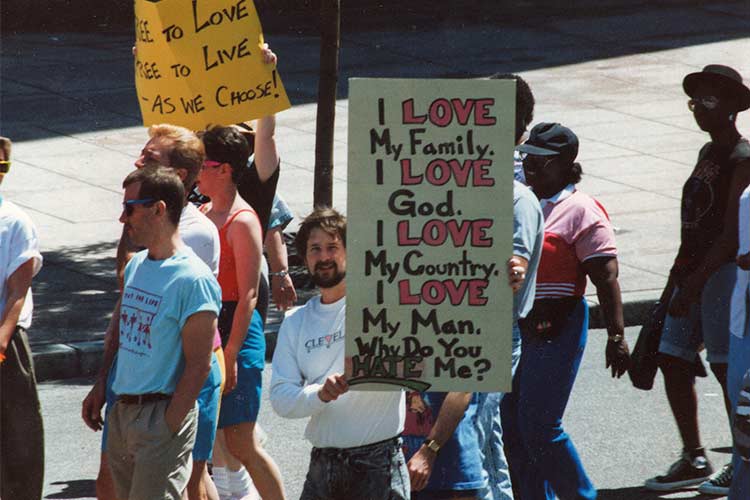 EE TO LOVE
REE TO LIVE
- AS WE CHOOSE!
I LOVE
My Family.
I LOVE
God.
I LOVE
My Country.
I LOVE
My Man.
Why Do You
HATE Me?
CLEVEL
OUT FOR LIFE